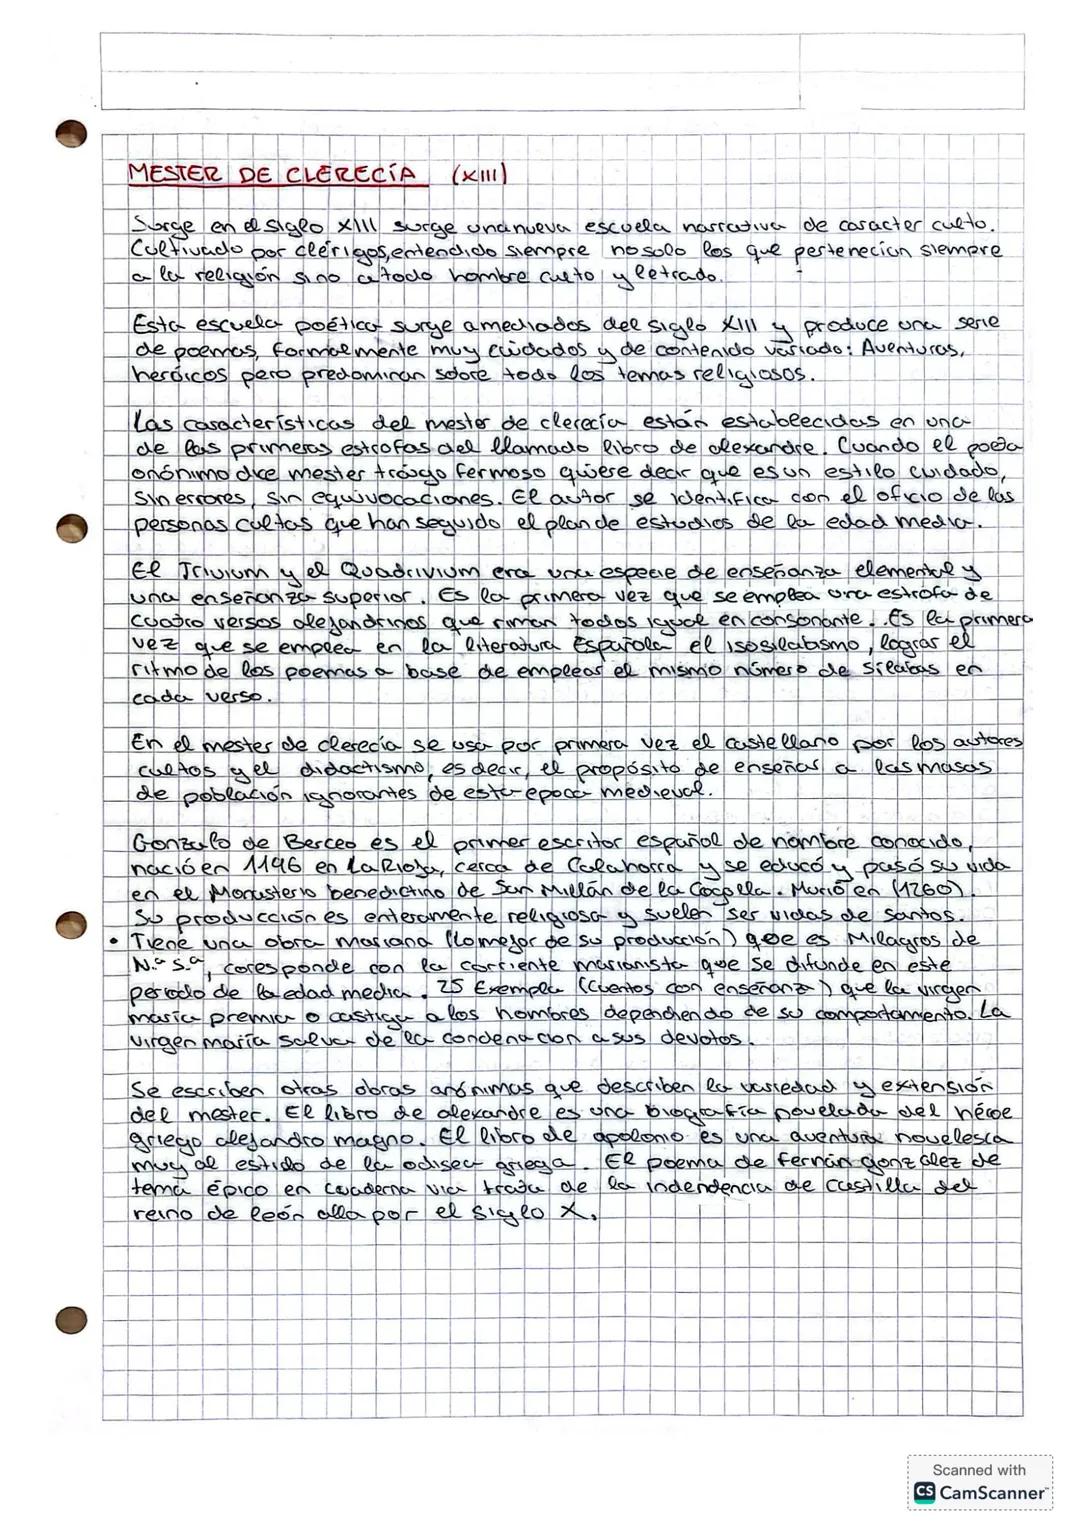 MESTER DE CLERECÍA (XIII)
Surge en el siglo XIII surge una nueva escuela narrativa de caracter culto.
Cultivado por clérigos, entendido siempre no solo los que pertenecian siempre
a la religión sino a todo hombre culto y letrado.
Esta escuela poética surge a mediados del siglo XIII y produce una serie
de poemas, formalmente muy cuidados y de contenido variado: Aventuras,
heróicos pero predominan sobre todo los temas religiosos.
Las características del mester de clerecía están establecidas en una
de las primeras estrofas del llamado libro de alexandre. Cuando el poeta
anónimo dice mester traygo fermoso quiere decir que es un estilo cuidado,
sin errores, sin equivocaciones. El autor se identifica con el oficio de las
personas cultas que han seguido el plan de estudios de la edad media.
El Trivium y el Quadrivium era una especie de enseñanza elemental y
una enseñanza superior. Es la primera vez que se emplea una estrofa de
cuatro versos alejandrinos que riman todos igual en consonante. Es la primera
vez que se emplea en la literatura Española el isosilabismo, lograr el
ritmo de los poemas a base de emplear el mismo número de sílabas en
cada verso.
En el mester de clerecía se usa por primera vez el castellano por los autores
cultos y el didactismo, es decir, el propósito de enseñar a las masas
de población ignorantes de esta epoca medieval.
Gonzalo de Berceo es el primer escritor español de nombre conocido,
nació en 1196 en La Rioja, cerca de Calahorra y se educó y pasó su vida
en el Monasterio benedictino de San Millán de la Cogolla. Murió en (1260).
Su producción es enteramente religiosa y suelen ser vidas de santos.
• Tiene una obra mariana (lo mejor de su producción) que es Milagros de
N.ª S.ª, coresponde con la corriente marianista que se difunde en este
periodo de la edad media. 25 Exempla (cuentos con enseñanza) que la virgen
maría premia o castiga a los hombres dependiendo de su comportamiento. La
virgen maría salva de la condenacion a sus devotos.
Se escriben otras obras anónimas que describen la variedad y extensión
del mester. El libro de alexandre es una biografía novelada del héroe
griego alejandro magno. El libro de apolonio es una aventura novelesca
muy al estilo de la odisea griega. El poema de fernán gonzález de
tema épico en cuaderna vía trata de la indendencia de castilla del
reino de león alla por el siglo X.
Scanned with
CS CamScanner